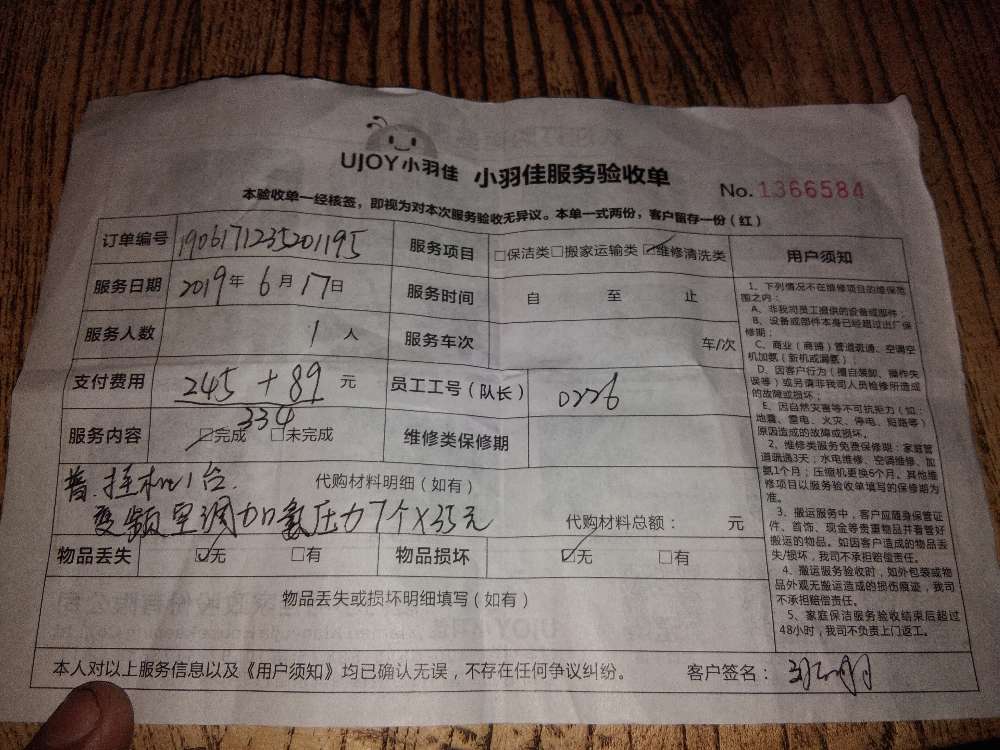 UJOY小羽佳 小羽佳服务验收单 No.1366584
本验收单一经核签，即视为对本次服务验收无异议。本单一式两份，客户留存一份（红）
订单编号 1906171235201195 服务项目 □保洁类□搬家运输类☑维修清洗类
服务日期 2019年6月17日 服务时间 自 至 止
服务人数 1人 服务车次 车/次
支付费用 245+89元 员工工号（队长） 0226
334
服务内容 ☑完成 □未完成 维修类保修期
普.挂机1台 代购材料明细（如有）
变频空调加氨压力7个×35元 代购材料总额： 元
物品丢失 ☑无 □有 物品损坏 ☑无 □有
物品丢失或损坏明细填写（如有）
本人对以上服务信息以及《用户须知》均已确认无误，不存在任何争议纠纷。 客户签名：
用户须知
1、下列情况不在维修项目的维保范
围之内：
A、非我司员工提供的设备或部件；
B、设备或部件本身已经超过出厂保
修期；
C、商业（商铺）管道疏通、空调空
机加氨（新机或漏氨）；
D、因客户行为（擅自装卸、操作失
误等）或另请非我司人员检修所造成
的故障或损坏；
E、因自然灾害等不可抗拒力（如：
地震、雷电、火灾、停电、短路等）
原因造成的故障或损坏。
2、维修类服务免费保修期：家庭管
道疏通3天；水电维修、空调维修、加
氨1个月；压缩机更换6个月。其他维
修项目以服务验收单填写的保修期为
准。
3、搬运服务中，客户应随身保管证
件、首饰、现金等贵重物品并看管好
搬运的物品。如因客户造成的物品丢
失/损坏，我司不承担赔偿责任。
4、搬运服务验收时，如外包装或物
品外观无搬运造成的损伤痕迹，我司
不承担赔偿责任。
5、家庭保洁服务验收结束后超过
48小时，我司不负责上门返工。